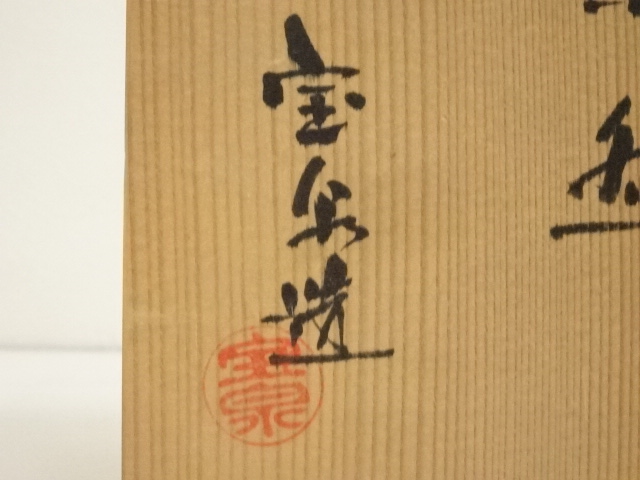 宝泉造
宝泉